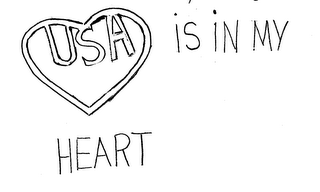 USA IS IN MY
HEART